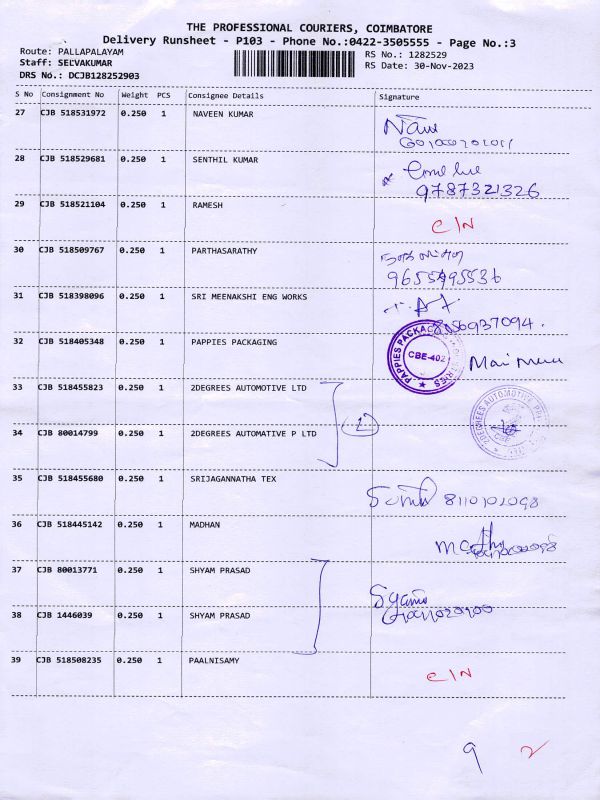 THE PROFESSIONAL COURIERS, COIMBATORE
Delivery Runsheet - P103 - Phone No.:0422-3505555 - Page No.:3
Route: PALLAPALAYAM
RS No.: 1282529
Staff: SELVAKUMAR
RS Date: 30-Nov-2023
DRS No.: DCJB128252903
S No Consignment No Weight PCS Consignee Details Signature
27 CJB 518531972 0.250 1 NAVEEN KUMAR
28 CJB 518529681 0.250 1 SENTHIL KUMAR
9787321326
29 CJB 518521104 0.250 1 RAMESH
C/N
30 CJB 518509767 0.250 1 PARTHASARATHY
31 CJB 518398096 0.250 1 SRI MEENAKSHI ENG WORKS
8056937094.
32 CJB 518405348 0.250 1 PAPPIES PACKAGING
CBE-402
33 CJB 518455823 0.250 1 2DEGREES AUTOMOTIVE LTD
34 CJB 80014799 0.250 1 2DEGREES AUTOMATIVE P LTD
35 CJB 518455680 0.250 1 SRIJAGANNATHA TEX
36 CJB 518445142 0.250 1 MADHAN
37 CJB 80013771 0.250 1 SHYAM PRASAD
38 CJB 1446039 0.250 1 SHYAM PRASAD
39 CJB 518508235 0.250 1 PAALNISAMY
C/N
9 2